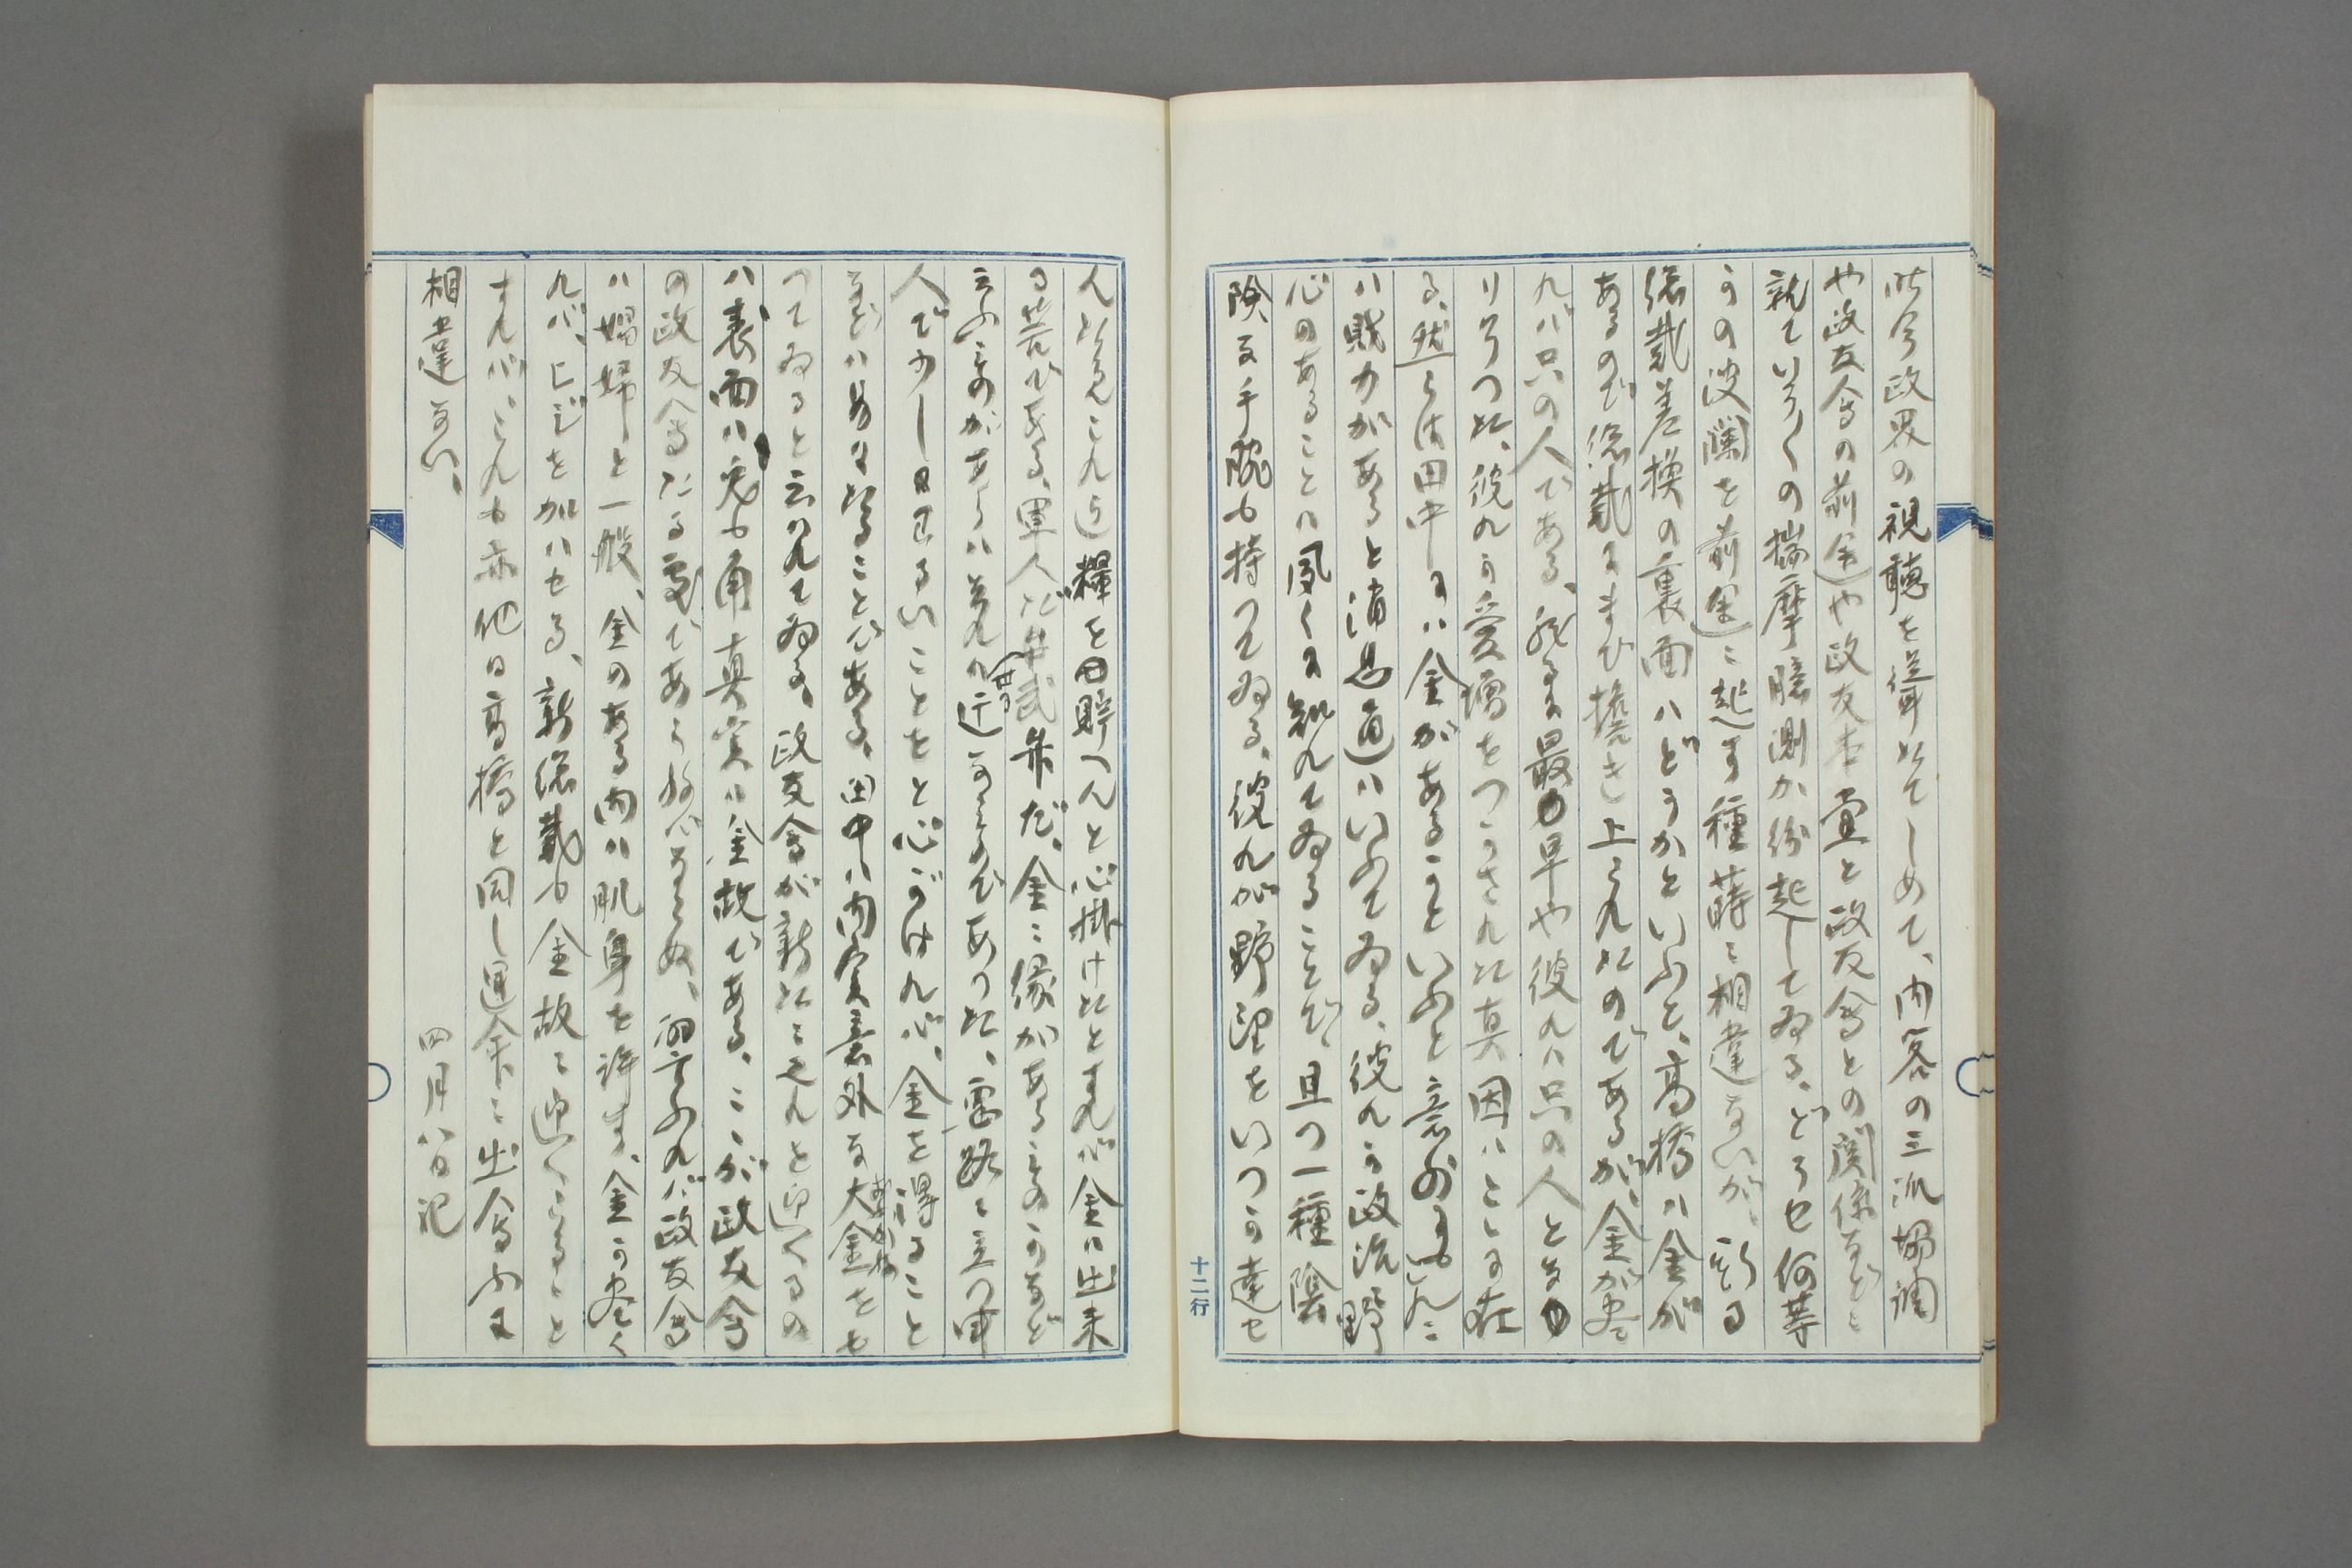 昨今政界の視聴を聳たてしめて、内容の三派協調
や政友会の前途や政友本党と政友会との関係などに
就ていろ〱の揣摩臆測が紛起してゐる、どうせ何等
かの波瀾を前途に起す種蒔に相違ないが、
総裁差換の裏面ハどうかといふと、高橋ハ金が
あるので総裁にまで担き上られたのであるが、金が尽
れバ只の人である、最早や彼れハ只の人となり
りつゝた、彼れが愛憎をつかされた真因ハこゝに在
る、然らば田中にハ金があるかといふと意外にもこれに
ハ財力があると消息通ハいふてゐる、彼れが政治野
心のあることハ夙くに知れてゐることだ、且つ一種陰
険な手腕も持つてゐる、彼れが野望をいつか達せ
十二行
んとてこれ迄糧を貯へんと心掛けたとすれバ金ハ出来
る筈である、軍人だ武弁だ、金に縁があるものかなど
云ふものがあらバそれハ迂なものであつた、要路に立つ軍
人で少し目はるいことをと心がけれバ、金を得ること
などハ易々たることである、田中ハ内実意外な大金をも
つてゐると云ハれてゐる、政友会が新たにそれを迎へるの
ハ表面ハ兎も角真実ハ金故である、こゝが政友会
の政友会たる処であらねバならぬ、言ふれバ政友会
ハ娼婦と一般、金のある内ハ肌身を許す、金が尽く
れバ、ヒジを加ハせる、新総裁も金故に迎へらるゝこと
すれバ、これも亦他日高橋と同し運命に出会ふに
相違ない、
四月八日記